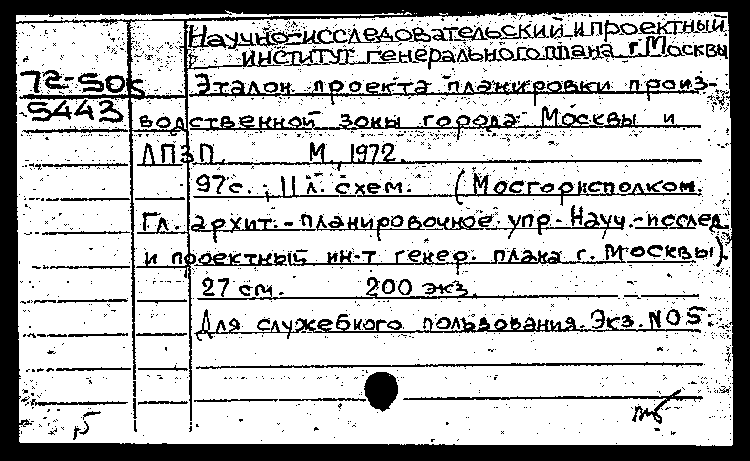 Научно-исследовательский и проектный
институт генерального плана г. Москвы
72-50к
5443
Эталон проекта планировки произ-
водственной зоны города Москвы и
ЛПЗП. М., 1972.
97с., 11 л. схем. (Мосгорисполком.
Гл. архит.-планировочное упр. Науч.-исслед
и проектный ин-т генер. плана г. Москвы).
27 см. 200 экз.
Для служебного пользования. Экз. №05.